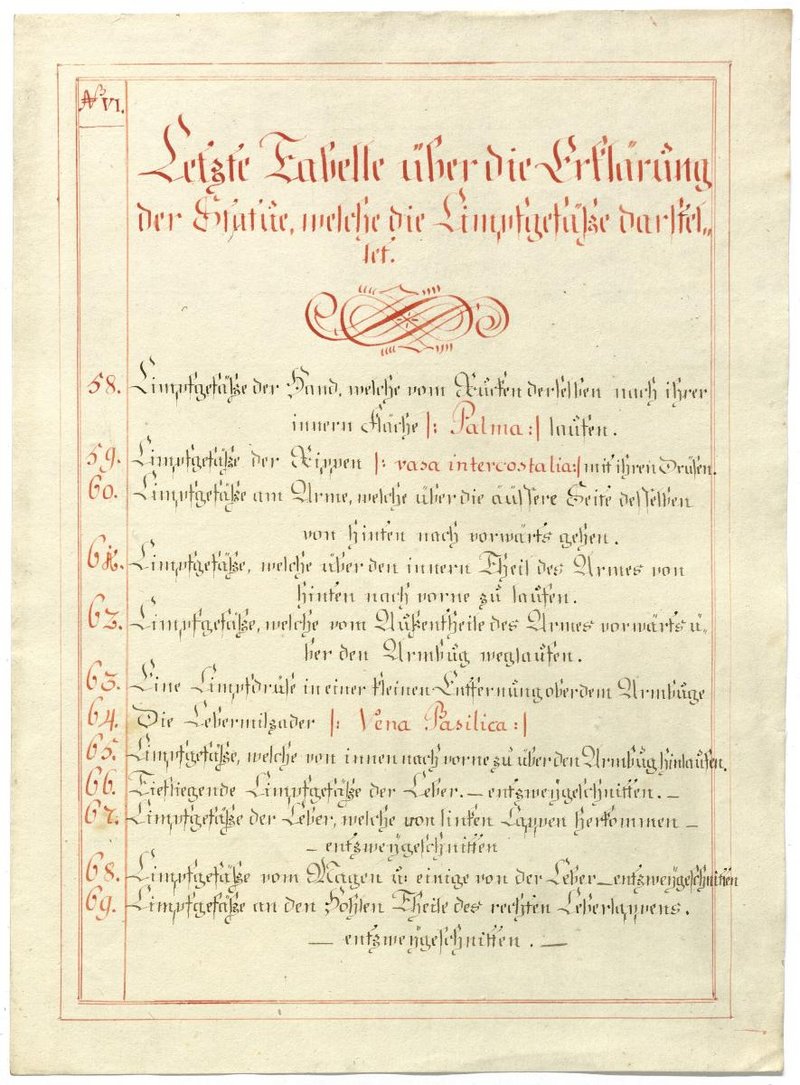 No VI.
Letzte Tabelle über die Erklärung
der Statüe, welche die Limpfgefäße darstel„
let.
58. Limpfgefäße der Hand, welche vom Rucken derselben nach ihrer
innern Fläche |: Palma :| laufen.
59. Limpfgefäße der Rippen |: vasa intercostalia :| mit ihren Drüsen.
60. Limpfgefäße am Arme, welche über die äüssere Seite desselben
von hinten nach vorwärts gehen.
61. Limpfgefäße, welche über den innern Theil des Armes von
hinten nach vorne zu laufen.
62. Limpfgefäße, welche vom Außentheile des Armes vorwärts ü„
ber den Armbug weglaufen.
63. Eine Limpfdrüse in einer kleinen Entfernung ober dem Armbuge
64. Die Lebermilzader |: Vena Basilica :|
65. Limpfgefäße, welche von innen nach vorne zu über den Armbug hinlaufen.
66. Tiefliegende Limpfgefäße der Leber. — entzweygeschnitten. —
67. Limpfgefäße der Leber, welche von linken Lappen herkommen —
— entzweygeschnitten
68. Limpfgefäße vom Magen u: einige von der Leber — entzweygeschnitten
69. Limpfgefäße an den Hohlen Theile des rechten Leberlappens.
— entzweygeschnitten. —